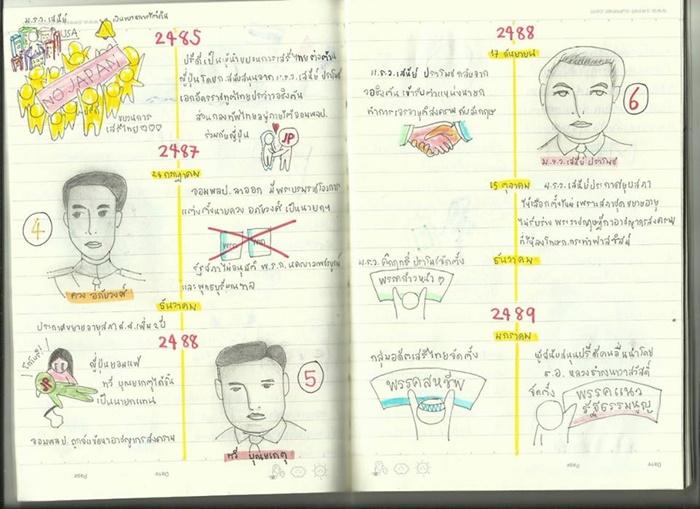 ม.ร.ว.เสนีย์
USA
NO JAPAN
ปรีดี
ขบวนการ
เสรีไทย
2485
ปรีดีเป็นผู้นำขบวนการเสรีไทยต่อต้าน
ญี่ปุ่นโดยการสนับสนุนจาก ม.ร.ว. เสนีย์ ปราโมช
เอกอัครราชทูตไทยประจำวอชิงตัน
ส่วนกองทัพไทยอยู่ภายใต้จอมพลป.
ร่วมกับญี่ปุ่น
JP
2487
24 กรกฎาคม
จอมพลป. ลาออก มีพระบรมราชโองการ
แต่งตั้งนายควง อภัยวงศ์ เป็นนายกฯ
4
ควง อภัยวงศ์
พรก
พรก
รัฐสภาไม่อนุมัติ พ.ร.ก. นครบาลเพชรบูรณ์
และพุทธบุรีมณฑล
ธันวาคม
ประกาศขยายอายุสภา ส.ส. เพิ่ม 2 ปี
2488
JP
ญี่ปุ่นยอมแพ้
ทวี บุณยเกตุได้รับ
เป็นนายกแทน
จอมพลป. ถูกจับข้อหาอาชญากรสงคราม
5
ทวี บุณยเกตุ
Date
Page
www.zequenz.com
2488
17 กันยายน
ม.ร.ว. เสนีย์ ปราโมช กลับจาก
วอชิงตัน เข้ารับตำแหน่งนายก
ทำการเจรจายุติสงคราม กับอังกฤษ
6
ม.ร.ว. เสนีย์ ปราโมช
15 ตุลาคม
ม.ร.ว. เสนีย์ประกาศยุบสภา
ให้เลือกตั้งใหม่ เพราะสภาชุดขยายอายุ
ธันวาคม
ม.ร.ว. คึกฤทธิ์ ปราโมชจัดตั้ง
พรรคก้าวหน้า
2489
มกราคม
กลุ่มอดีตเสรีไทยจัดตั้ง
พรรคสหชีพ
ผู้สนับสนุนปรีดีคนอื่นนำโดย
ร.อ. หลวงธำรงนาวาสวัสดิ์
จัดตั้ง
พรรคแนว
รัฐธรรมนูญ
Date
Page